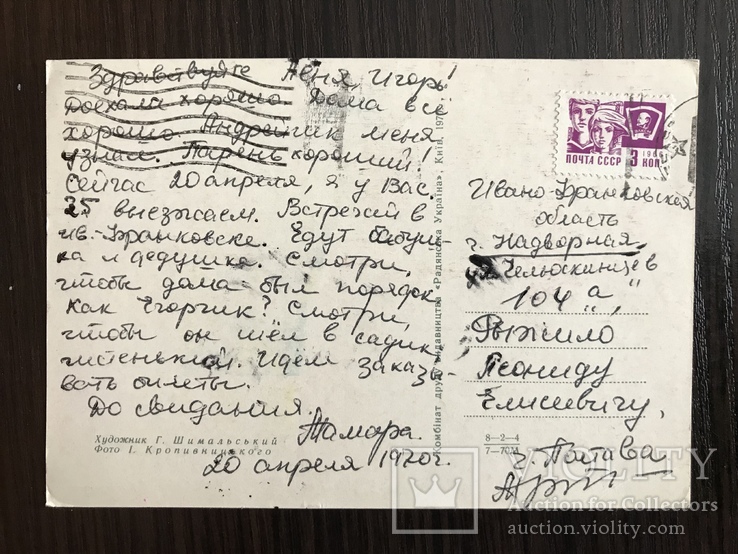 Здравствуйте Лёня, Игорь!
Доехали хорошо. Дома всё
хорошо. Андрейчик меня
узнал. Парень хороший!
Сейчас 20 апреля, я у Вас.
25 выезжаем. Встречай в
Ив.-Франковске. Едут бабуш-
ка и дедушка. Смотри,
чтобы дома был порядок
Как Егорчик? Смотри,
чтобы он шёл в садик
чистенький. Идём заказы-
вать билеты.
До свидания.
Тамара.
20 апреля 1970г.
Художник Г. Шимальський
Фото І. Кропивницького
Комбінат друку видавництва «Радянська Україна», Київ, 197
ПОЧТА СССР 3 КОП
1966
Ивано-Франковская
область
г. Надворная
ул. Челюскинцев
104 "а"
Рыжило
Леониду
Елисеевичу,
8-2-4
7-70М
г. Полтава
VIOLITY
Auction for Collectors
auction.violity.com